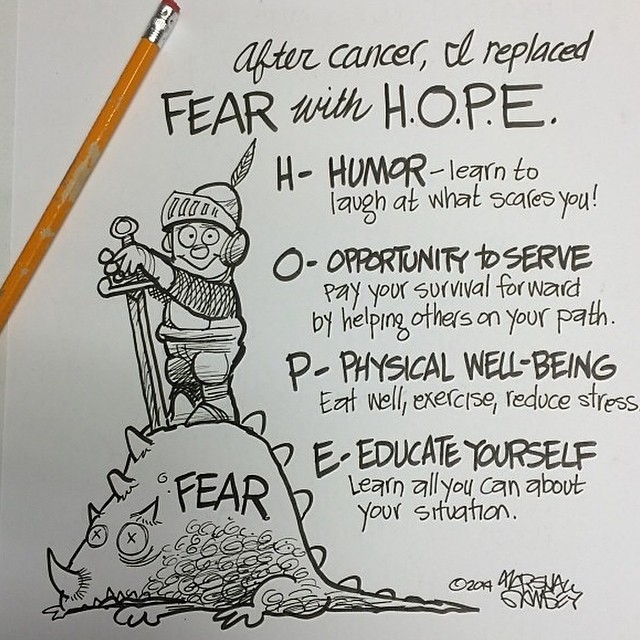 After cancer, I replaced
FEAR with H.O.P.E.
H- HUMOR - learn to
laugh at what scares you!
O- OPPORTUNITY to SERVE
Pay your survival forward
by helping others on your path.
P- PHYSICAL WELL-BEING
Eat well, exercise, reduce stress
E- EDUCATE YOURSELF
Learn all you can about
your situation.
FEAR
©2014 MARSHALL
RAMSEY